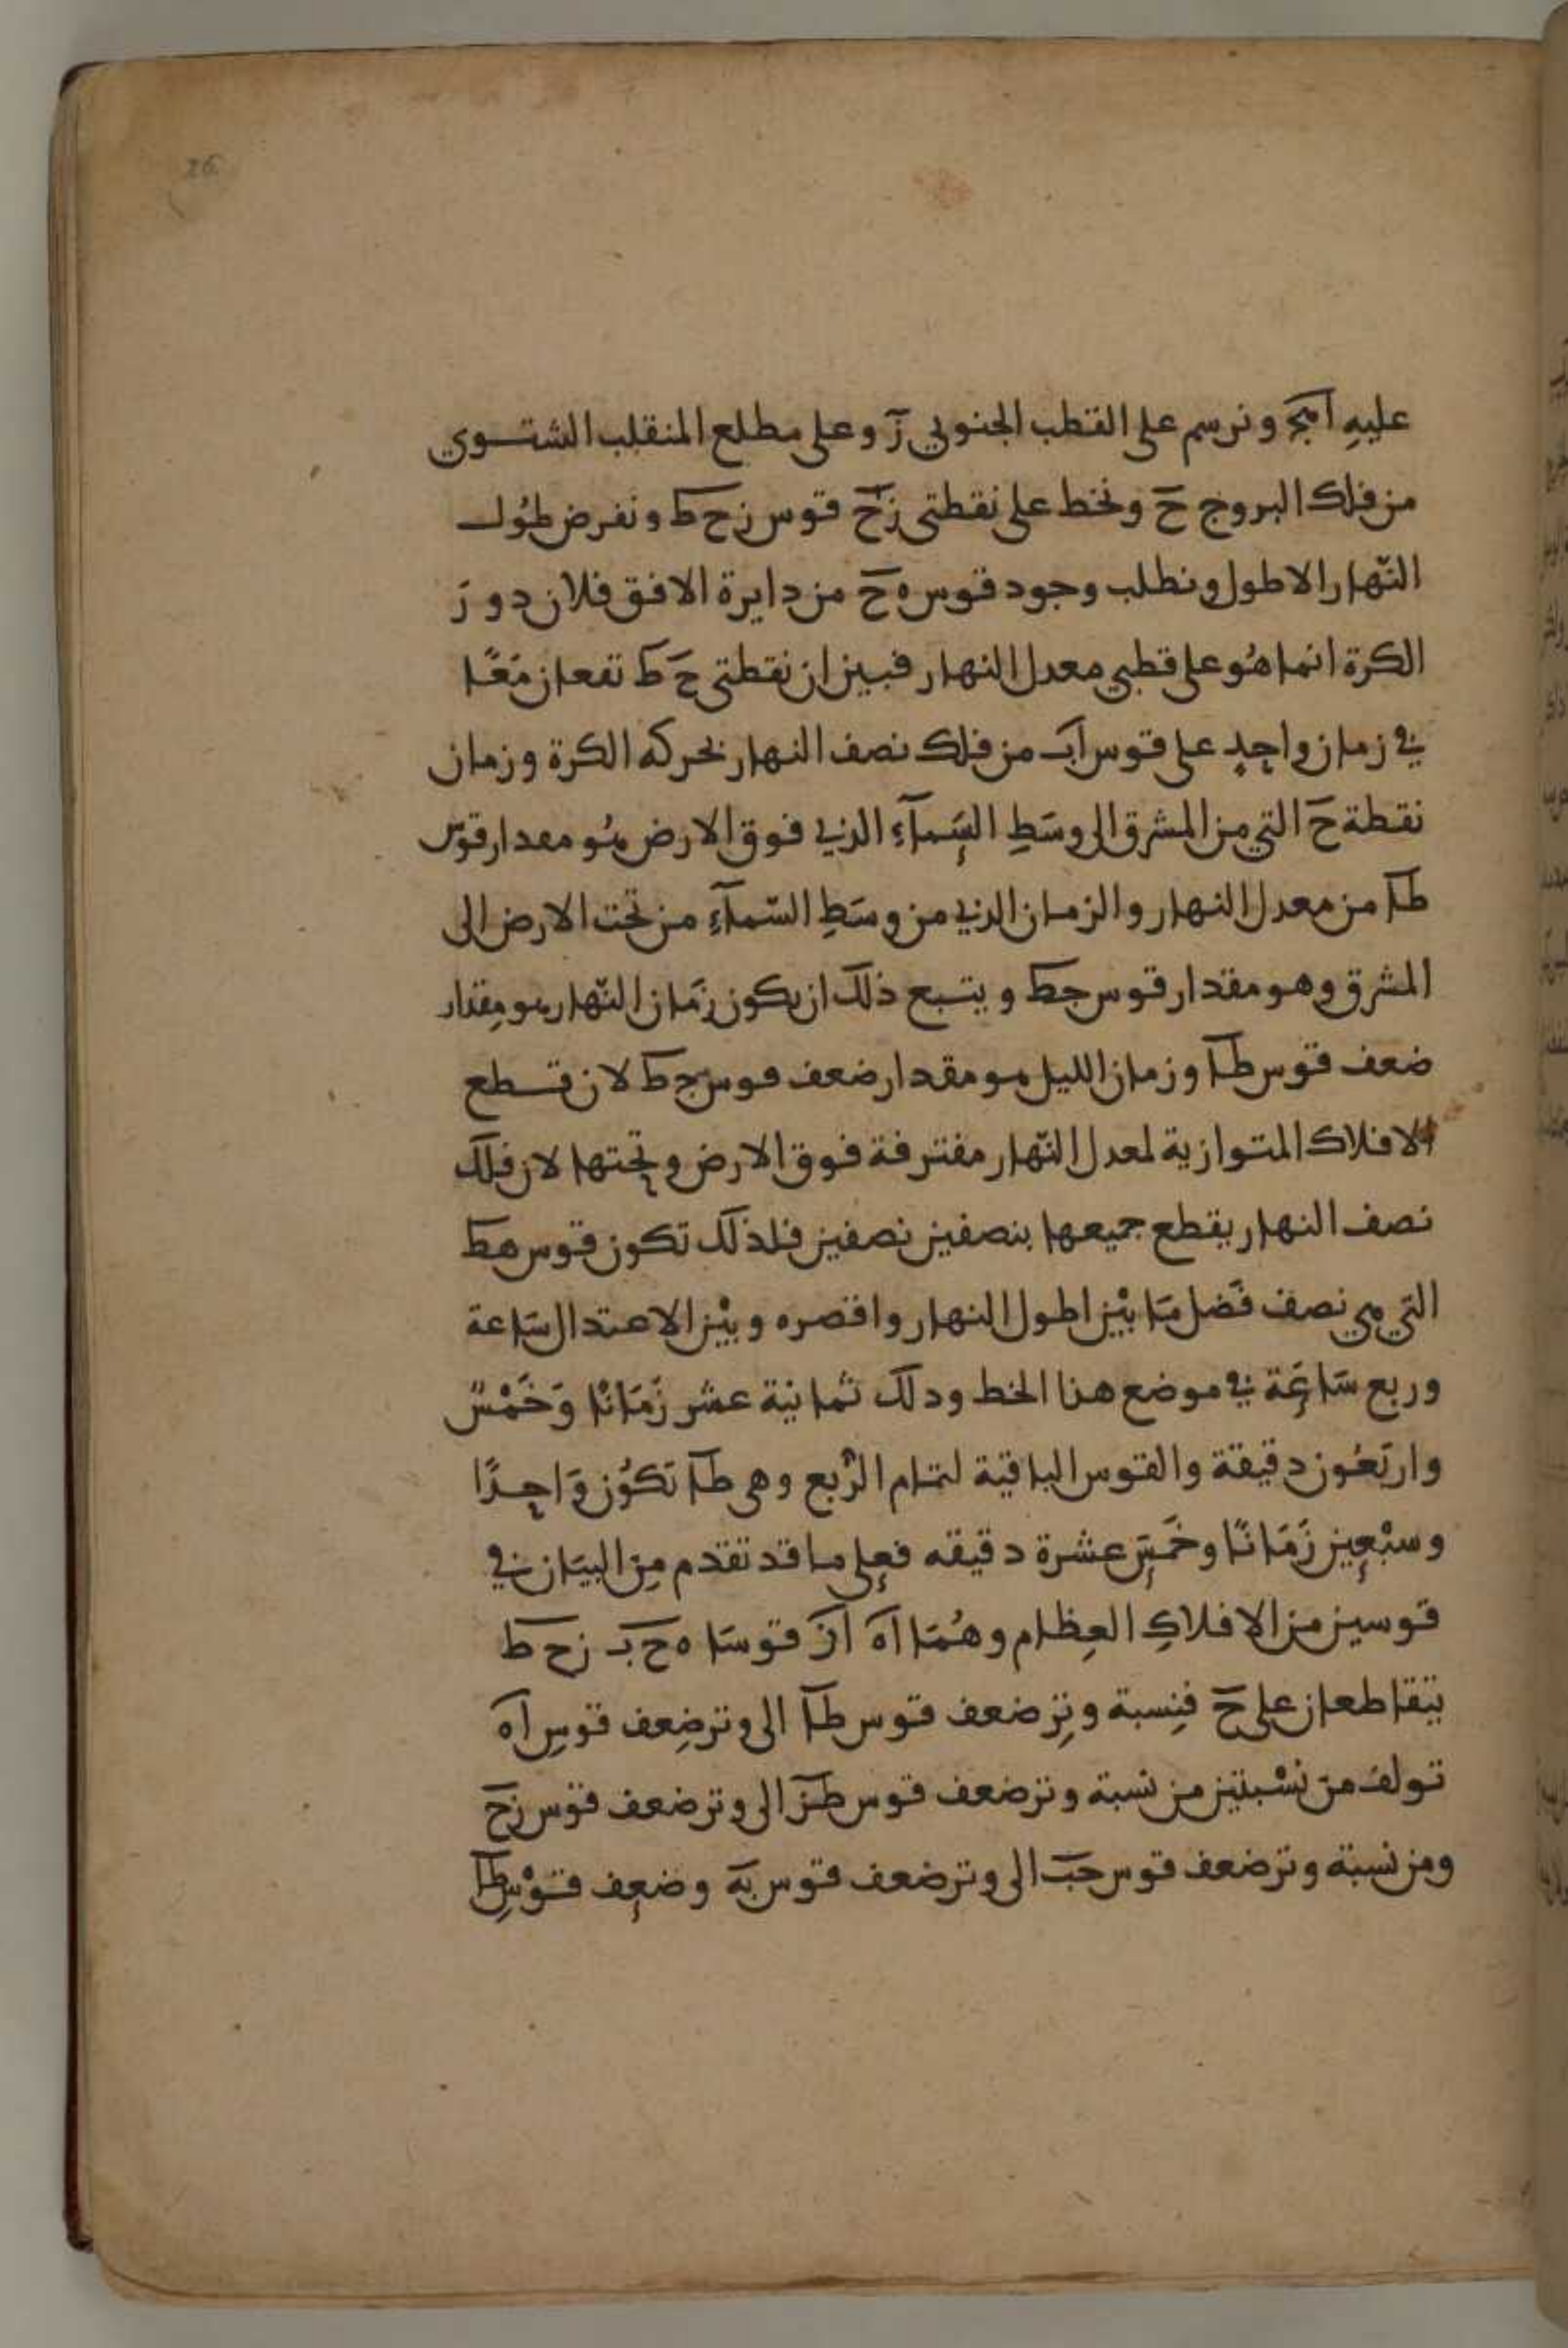 26
عليهِ اهجَ ونرسم على القطب الجنوبي زَ وعلى مطلع المنقلب الشتوي
من فلك البروج حَ ونخط على نقطتي زَحَ قوس زح ط ونفرض طُول
النّهار الاطول ونطلب وجود قوس ه حَ من دايرة الافق فلان دور
الكرة انما هُو على قطبي معدل النهار فبين ان نقطتي حَ ط تقعان مَعًا
في زمان واحدٍ على قوس اَبَ من فلك نصف النهار بحركه الكرة وزمان
نقطة حَ التي من المشرق الى وسَطِ السَمآءِ الذي فوق الارض هُو مقدار قوس
طا من معدل النهار والزمان الذي من وسَطِ السّمآءِ من تحت الارض الى
المشرق وهو مقدار قوس جط ويتبع ذلك ان يكون زَمان النّهار هو مِقدار
ضعف قوس طا وزمان الليل هو مقدار ضعف قوس ج ط لان قطع
الافلاك المتوازية لمعدل النّهار مفترقة فوق الارض وتحتها لان فلك
نصف النهار يقطع جميعها بنصفين نصفين فلذلك تكون قوس هط
التي هي نصف فَضل مَا بيْن اطول النهار واقصره وبيْن الاعتدال سَاعة
وربع سَاعَة في موضع هذا الخط وذلك ثمانية عشر زَمَانًا وَخَمْسٌ
واربَعُون دقيقة والقوس الباقية لتمام الرّبع وهي طا تكوُن وَاحِدًا
وسبْعِين زَمَانًا وخَمسَ عشرة دقيقه فعلى ما قد تقدم مِن البيَان في
قوسين من الافلاكِ العِظام وهُمَا اَه اَزَ قوسَا ه ح بَ زح ط
يتقاطعان على حَ فنِسبة وترِ ضعف قوس طا الى وتر ضِعف قوسِ اه
تولف من نسْبتين من نسبة وتر ضعف قوس طز الى وتر ضعف قوس زحَ
ومن نسبة وتر ضعف قوس حبَ الى وتر ضعف قوس بهَ وضعِف قوْسِ طا